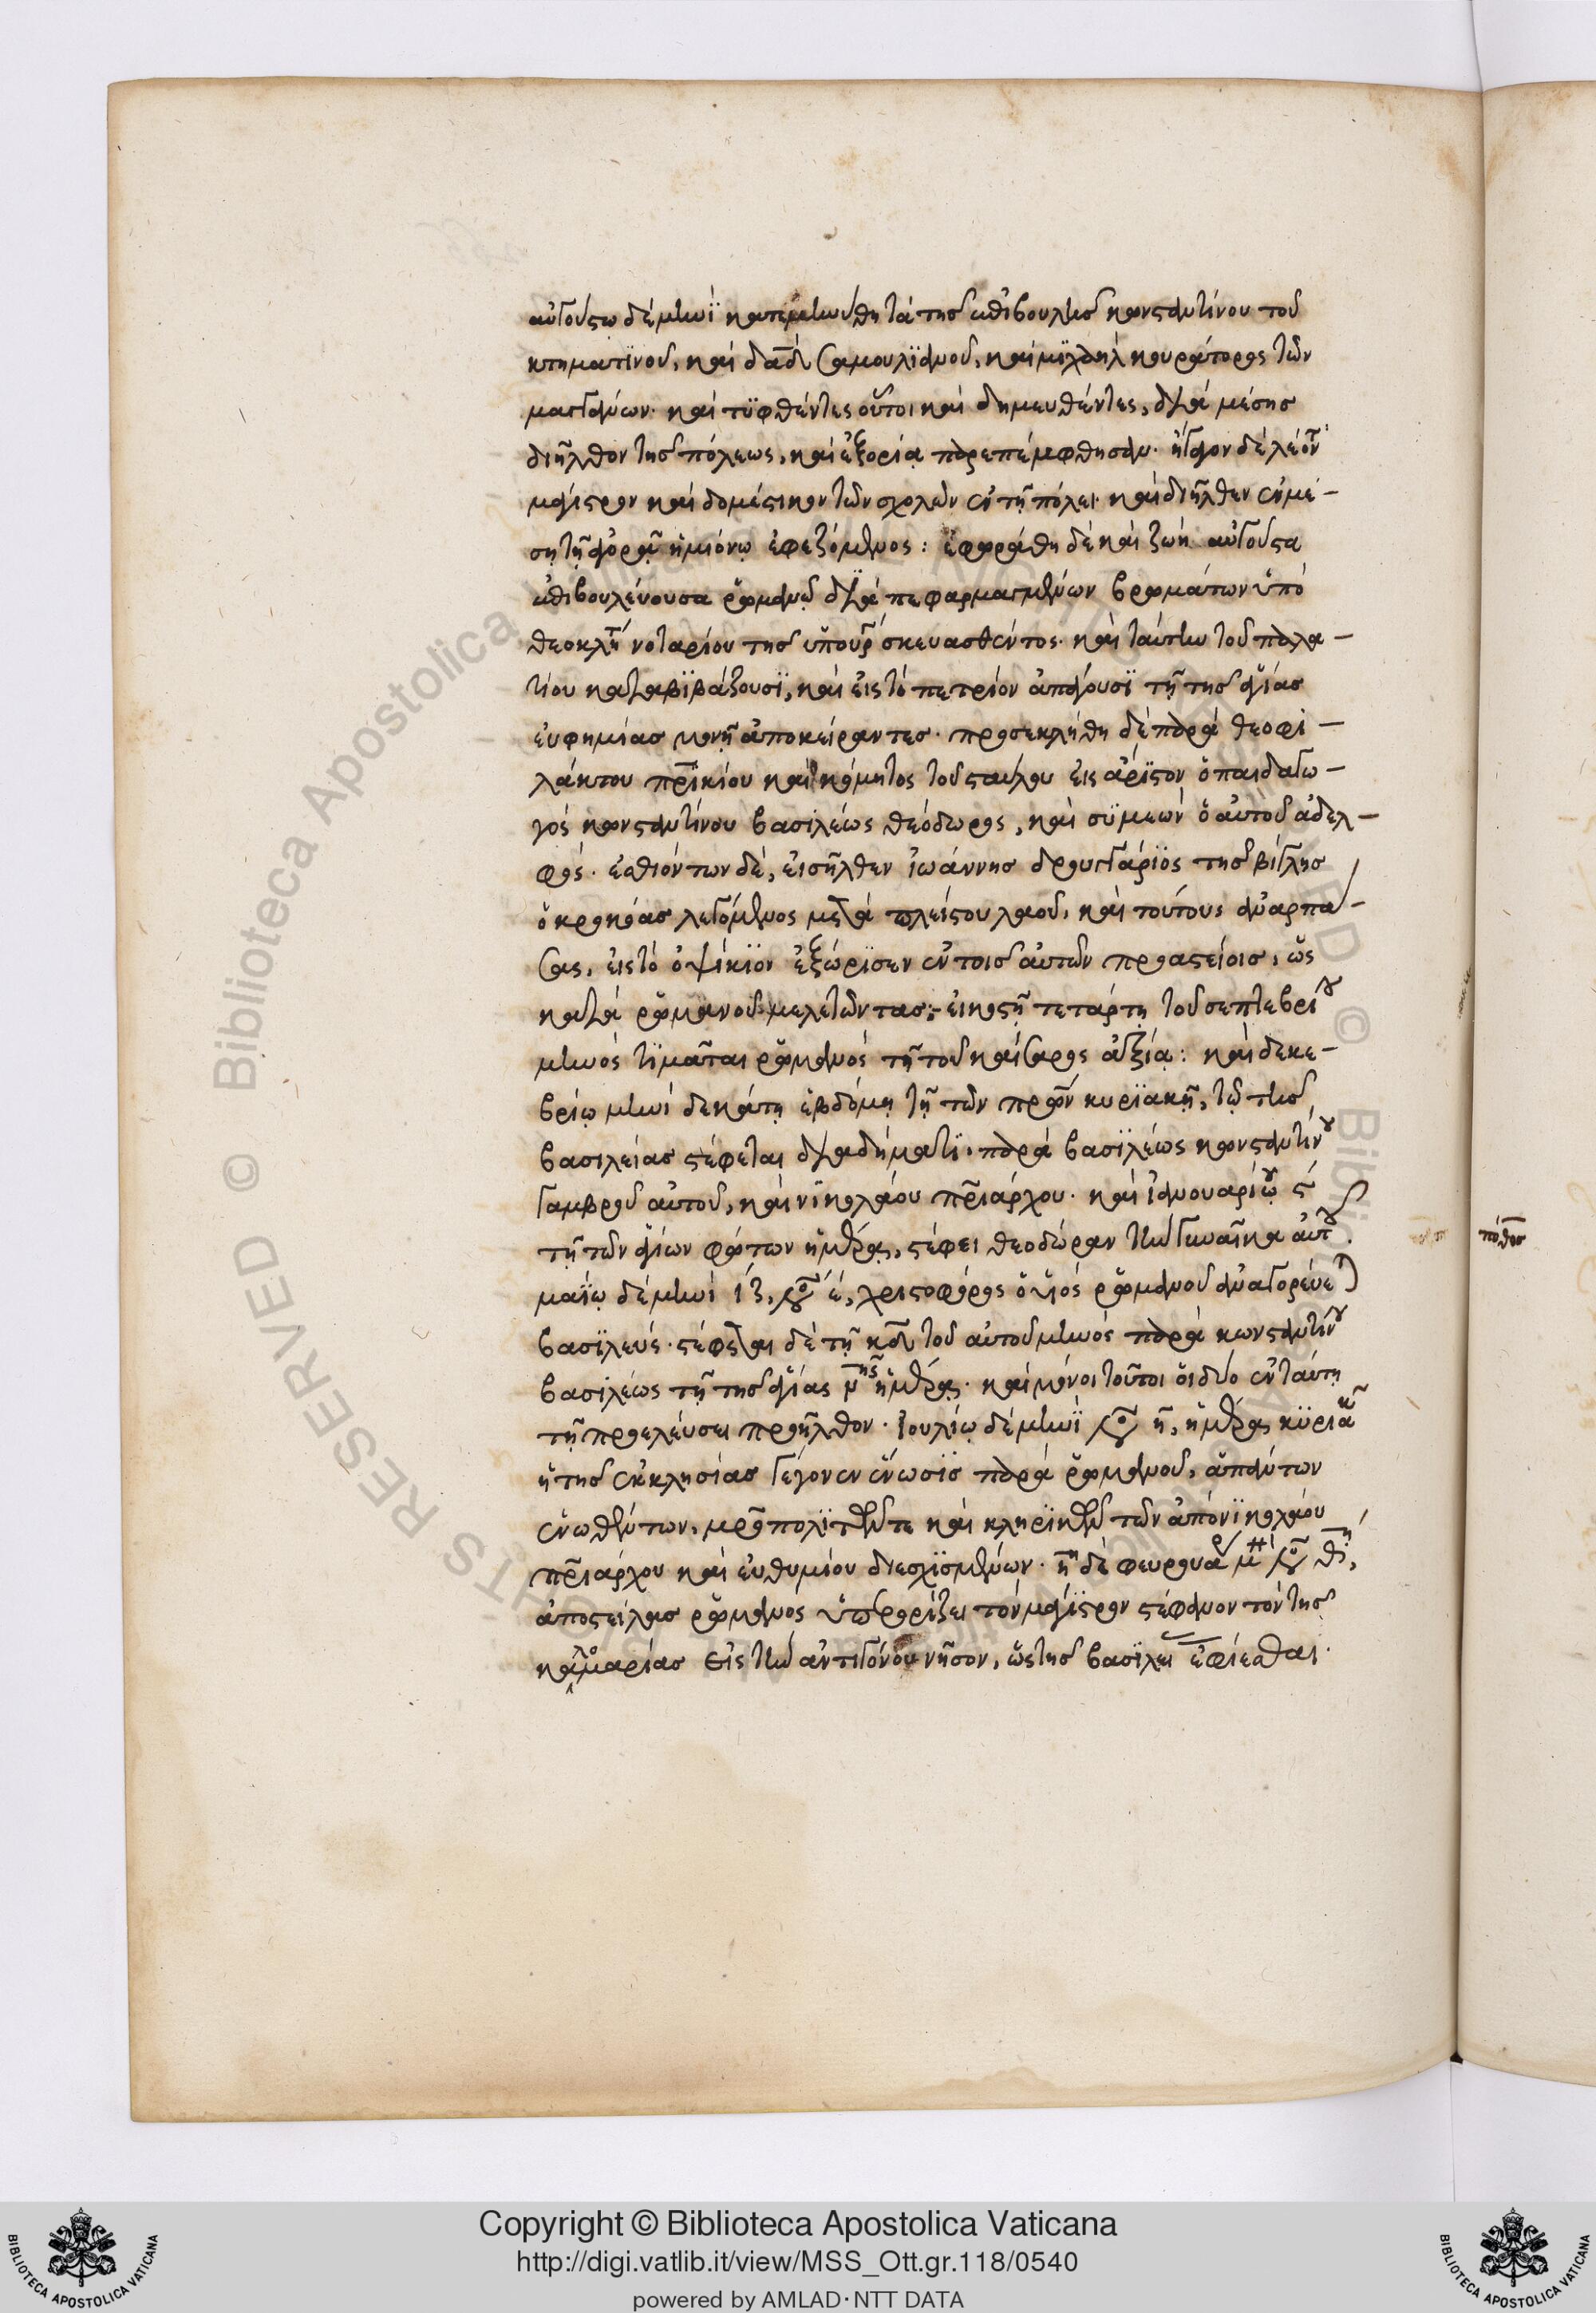 αὐγούστω δὲ μηνὶ κατεμηνύθη τὰ τῆς ἐπιβουλῆς κωνσταντίνου τοῦ
κτηματίνου, καὶ δαδὰ σαμουλϊανοῦ, καὶ μϊχαὴλ κουράτορος τῶν
μαγγάνων. καὶ τϋφθέντες οὗτοι καὶ δημευθέντες, διὰ μέσης
διῆλθον τῆς πόλεως, καὶ ἐξορία παρεπέμφθησαν. ἤγαγον δὲ λέοντα
μάγιστρον καὶ δομέστικον τῶν σχολῶν ἐν τῇ πόλει καὶ διῆλθεν ἐν μέ-
ση τῇ ἀγορᾷ ἡμιόνῳ ἐφεζόμενος: ἐφωράθη δὲ καὶ ζωὴ αὐγούστα
ἐπιβουλεύουσα ῥωμανῷ διὰ πεφαρμαγμένων βρωμάτων ὑπὸ
θεοκλήτου νοταρίου τῆς ὑπουργίας σκευασθέντος. καὶ ταύτην τοῦ παλα-
τίου καταβϊβάζουσϊ, καὶ εἰς τὸ πετρίον ἀπάγουσϊ τῇ τῆς ἁγίας
εὐφημίας μονῇ ἀποκείραντες. προσεκλήθη δὲ παρὰ θεοφι-
λάκτου πατρικίου καὶ κόμητος τοῦ σταύλου εἰς ἄρϊστον ὁ παιδαγω-
γὸς κωνσταντίνου βασιλέως θεόδωρος, καὶ σϋμεὼν ὁ αὐτοῦ ἀδελ-
φός. ἐσθιόντων δὲ, εἰσῆλθεν ἰωάννης δρουγγάρϊος τῆς βίγλης
ὁ κροκόας λεγόμενος μετὰ πλείστου λαοῦ, καὶ τούτους ἀναρπά-
σας, εἰς τὸ ὀψίκϊον ἐξώρϊσεν ἐν τοῖς αὐτῶν προαστείοις, ὡς
κατὰ ῥωμανοῦ μελετῶντας: εἰκοστῇ τετάρτῃ τοῦ σεπτεβρίου
μηνὸς τϊμᾶται ῥωμανὸς τῇ τοῦ καίσαρος ἀξίᾳ: καὶ δεκε-
βρίῳ μηνὶ δεκάτῃ ἑβδόμῃ τῇ τῶν προπατόρων κυρϊακῇ, τῷ τῆς
βασιλείας στέφεται διαδήματϊ. παρὰ βασϊλέως κωνσταντίνου
γαμβροῦ αὐτοῦ, καὶ νϊκολάου πατριάρχου. καὶ ἰανουαρίῳ ϛ
τῇ τῶν ἁγίων φώτων ἡμέρᾳ, στέφει θεοδώραν τὴν γυναῖκα αὐτοῦ.
μαΐῳ δὲ μηνὶ ιζ, ἰνδικτιῶνος ε, χριστοφόρος ὁ υἱὸς ῥωμανοῦ ἀναγορεύεται
βασϊλεύς. στέφεται δὲ τῇ κδ τοῦ αὐτοῦ μηνὸς παρὰ κωνσταντίνου
βασϊλέως τῇ τῆς ἁγίας ν ἡμέρᾳ. καὶ μόνοι τοῦτοι οἱ δύο ἐν ταύτῃ
τῇ προελεύσει προῆλθον. ἰουλίῳ δὲ μηνϊ ἰνδικτιῶνος η, ἡμέρᾳ κϋριακῇ
ἡ τῆς ἐκκλησίας γέγονεν ἕνωσϊς παρὰ ῥωμανοῦ, ἁπάντων
ἑνωθέντων, μητροπολϊτῶν τε καὶ κληρϊκῶν τῶν ἀπὸ νϊκολάου
πατριάρχου καὶ εὐθυμίου διεσχϊσμένων. η δὲ φευρουαρίου μηνὶ ἰνδικτιῶνος θ,
ἀποστείλας ῥωμανὸς ὑπερορίζει τὸν μάγϊστρον στέφανον τὸν τῆς
καλομαρίας εἰς τὴν ἀντιγόνου νῆσον, ὡς τῆς βασϊλείας ἐφίεσθαι.
Copyright © Biblioteca Apostolica Vaticana
http://digi.vatlib.it/view/MSS_Ott.gr.118/0540
powered by AMLAD·NTT DATA